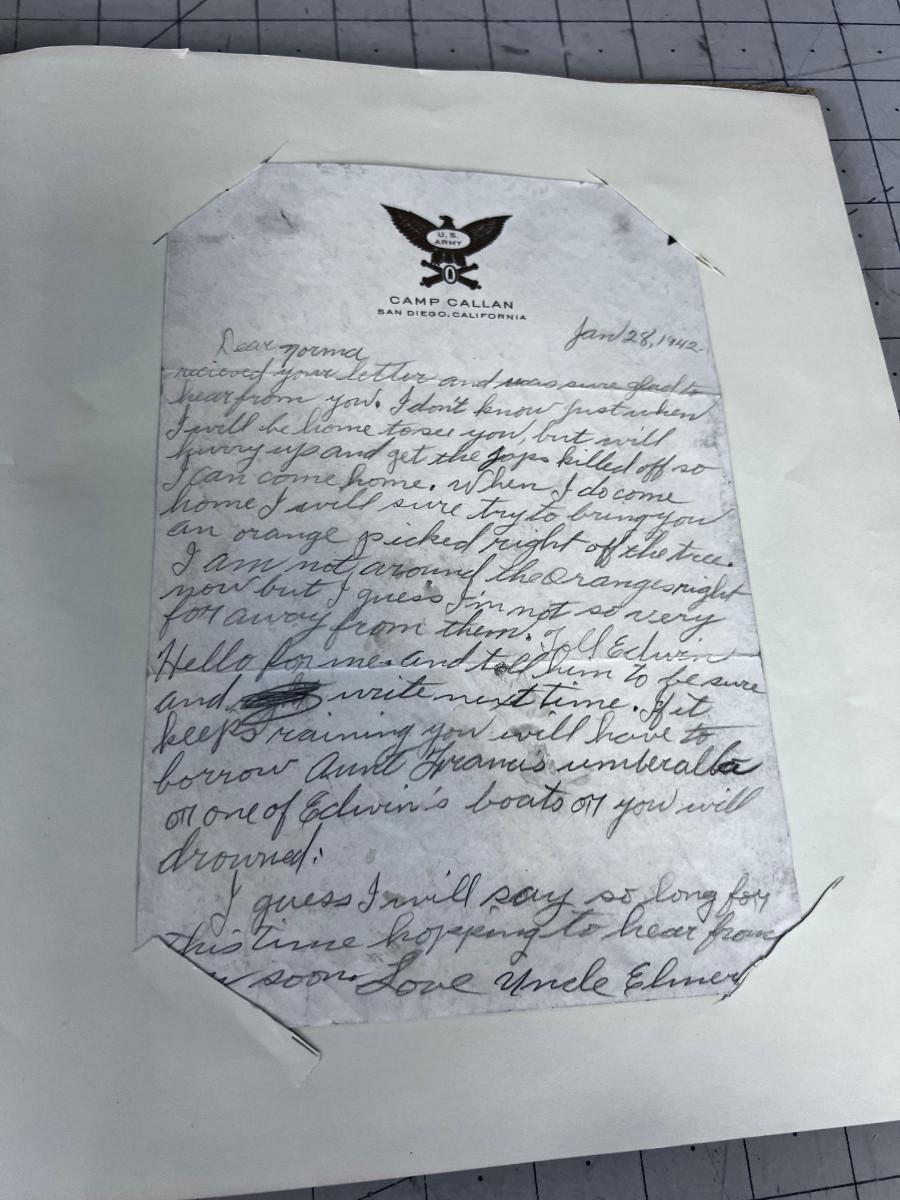 U.S.
ARMY
CAMP CALLAN
SAN DIEGO, CALIFORNIA
Jan 28, 1942
Dear Norma
recieved your letter and was sure glad to
hear from you. I don't know just when
I will be home to see you, but will
hurry up and get the Japs killed off so
I can come home. When I do come
home I will sure try to bring you
an orange picked right of the tree.
I am not around the oranges right
now but I guess I'm not so very
for away from them. Tell Edwin
Hello for me. and tell him to be sure
and write next time. If it
keeps raining you will have to
borrow Aunt Francis umberalla
or one of Edwin's boats or you will
drowned.
I guess I will say so long for
this time hopping to hear from
soon. Love Uncle Elmer